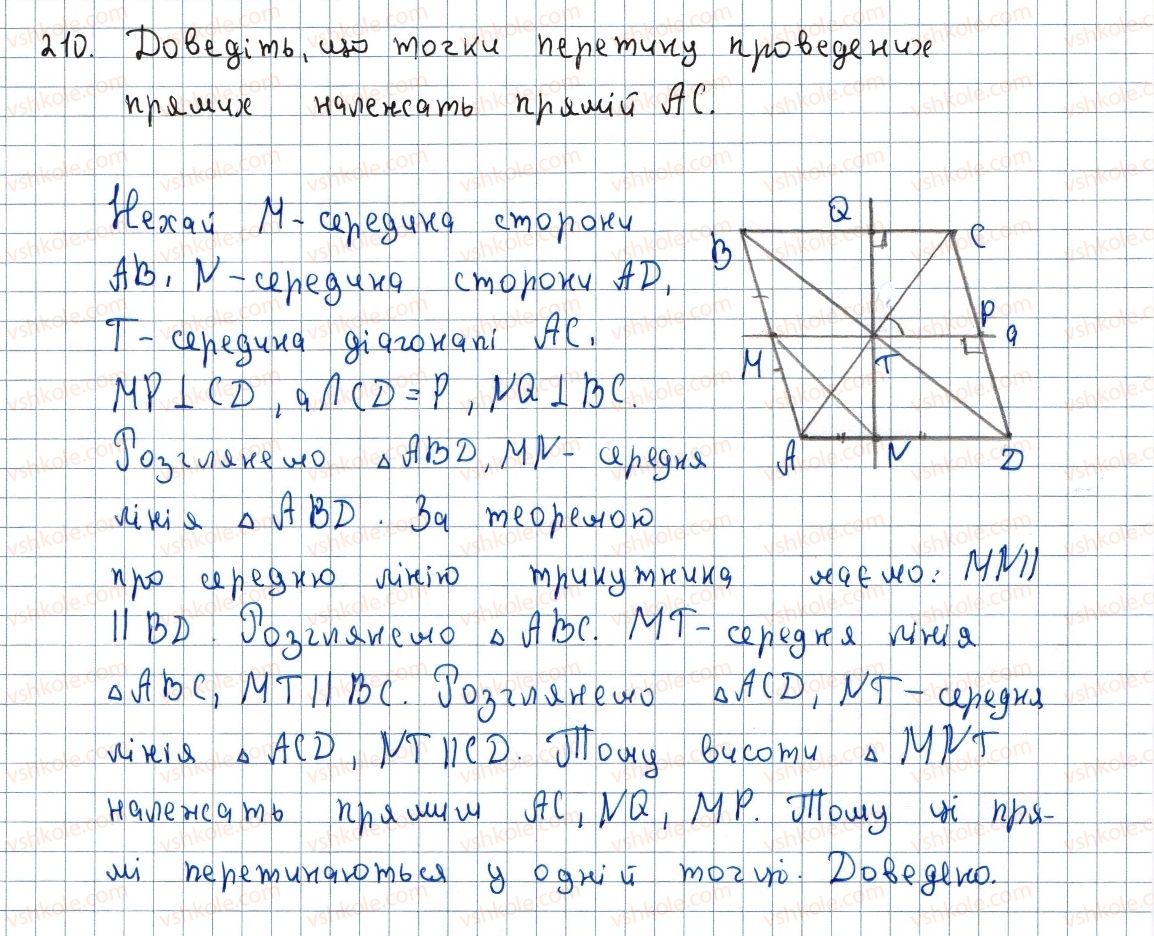 210. Доведіть, що точки перетину проведених
прямих належать прямій AC.
Нехай M - середина сторони
AB, N - середина сторони AD,
T - середина діагоналі AC.
MP ⊥ CD, a ∩ CD = P, NQ ⊥ BC.
Розглянемо △ ABD, MN - середня
лінія △ ABD. За теоремою
про середню лінію трикутника маємо: MN ||
|| BD. Розглянемо △ ABC. MT - середня лінія
△ ABC, MT || BC. Розглянемо △ ACD, NT - середня
лінія △ ACD, NT || CD. Тому висоти △ MNT
належать прямим AC, NQ, MP. Тому ці пря-
мі перетинаються у одній точці. Доведено.
Q
B
C
P
a
M
T
A
N
D
vshkole.com